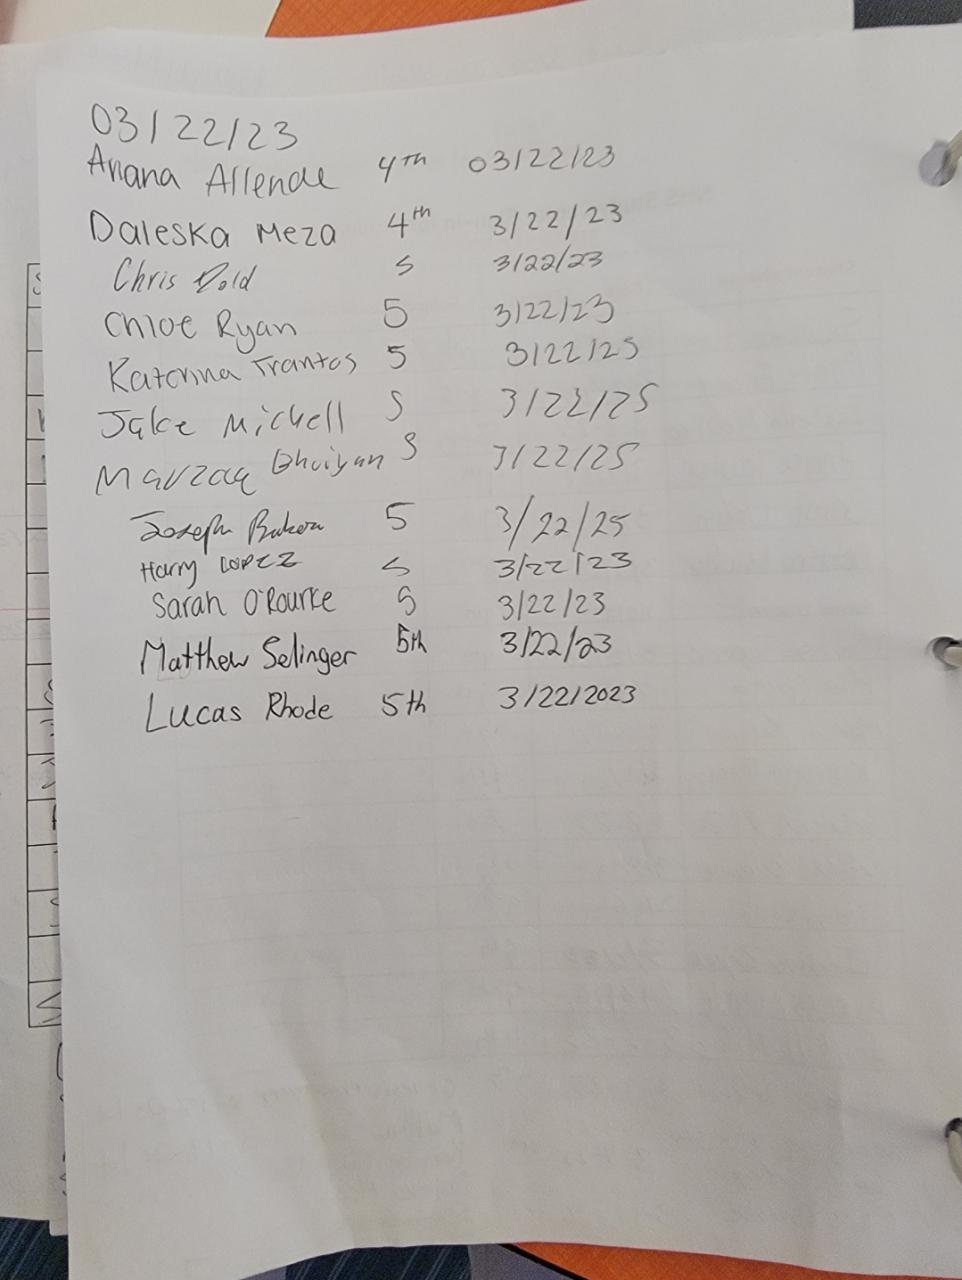 03/22/23
Ariana Allende 4th 03/22/23
Daleska Meza 4th 3/22/23
Chris Dold 5 3/22/23
Chloe Ryan 5 3/22/23
Katerina Trantos 5 3/22/25
Jake Michell 5 3/22/25
Marzaq Bhuiyan 5 3/22/25
Joseph 5 3/22/25
Harry LOPEZ 5 3/22/23
Sarah O'Rourke 5 3/22/23
Matthew Selinger 5th 3/22/23
Lucas Rhode 5th 3/22/2023